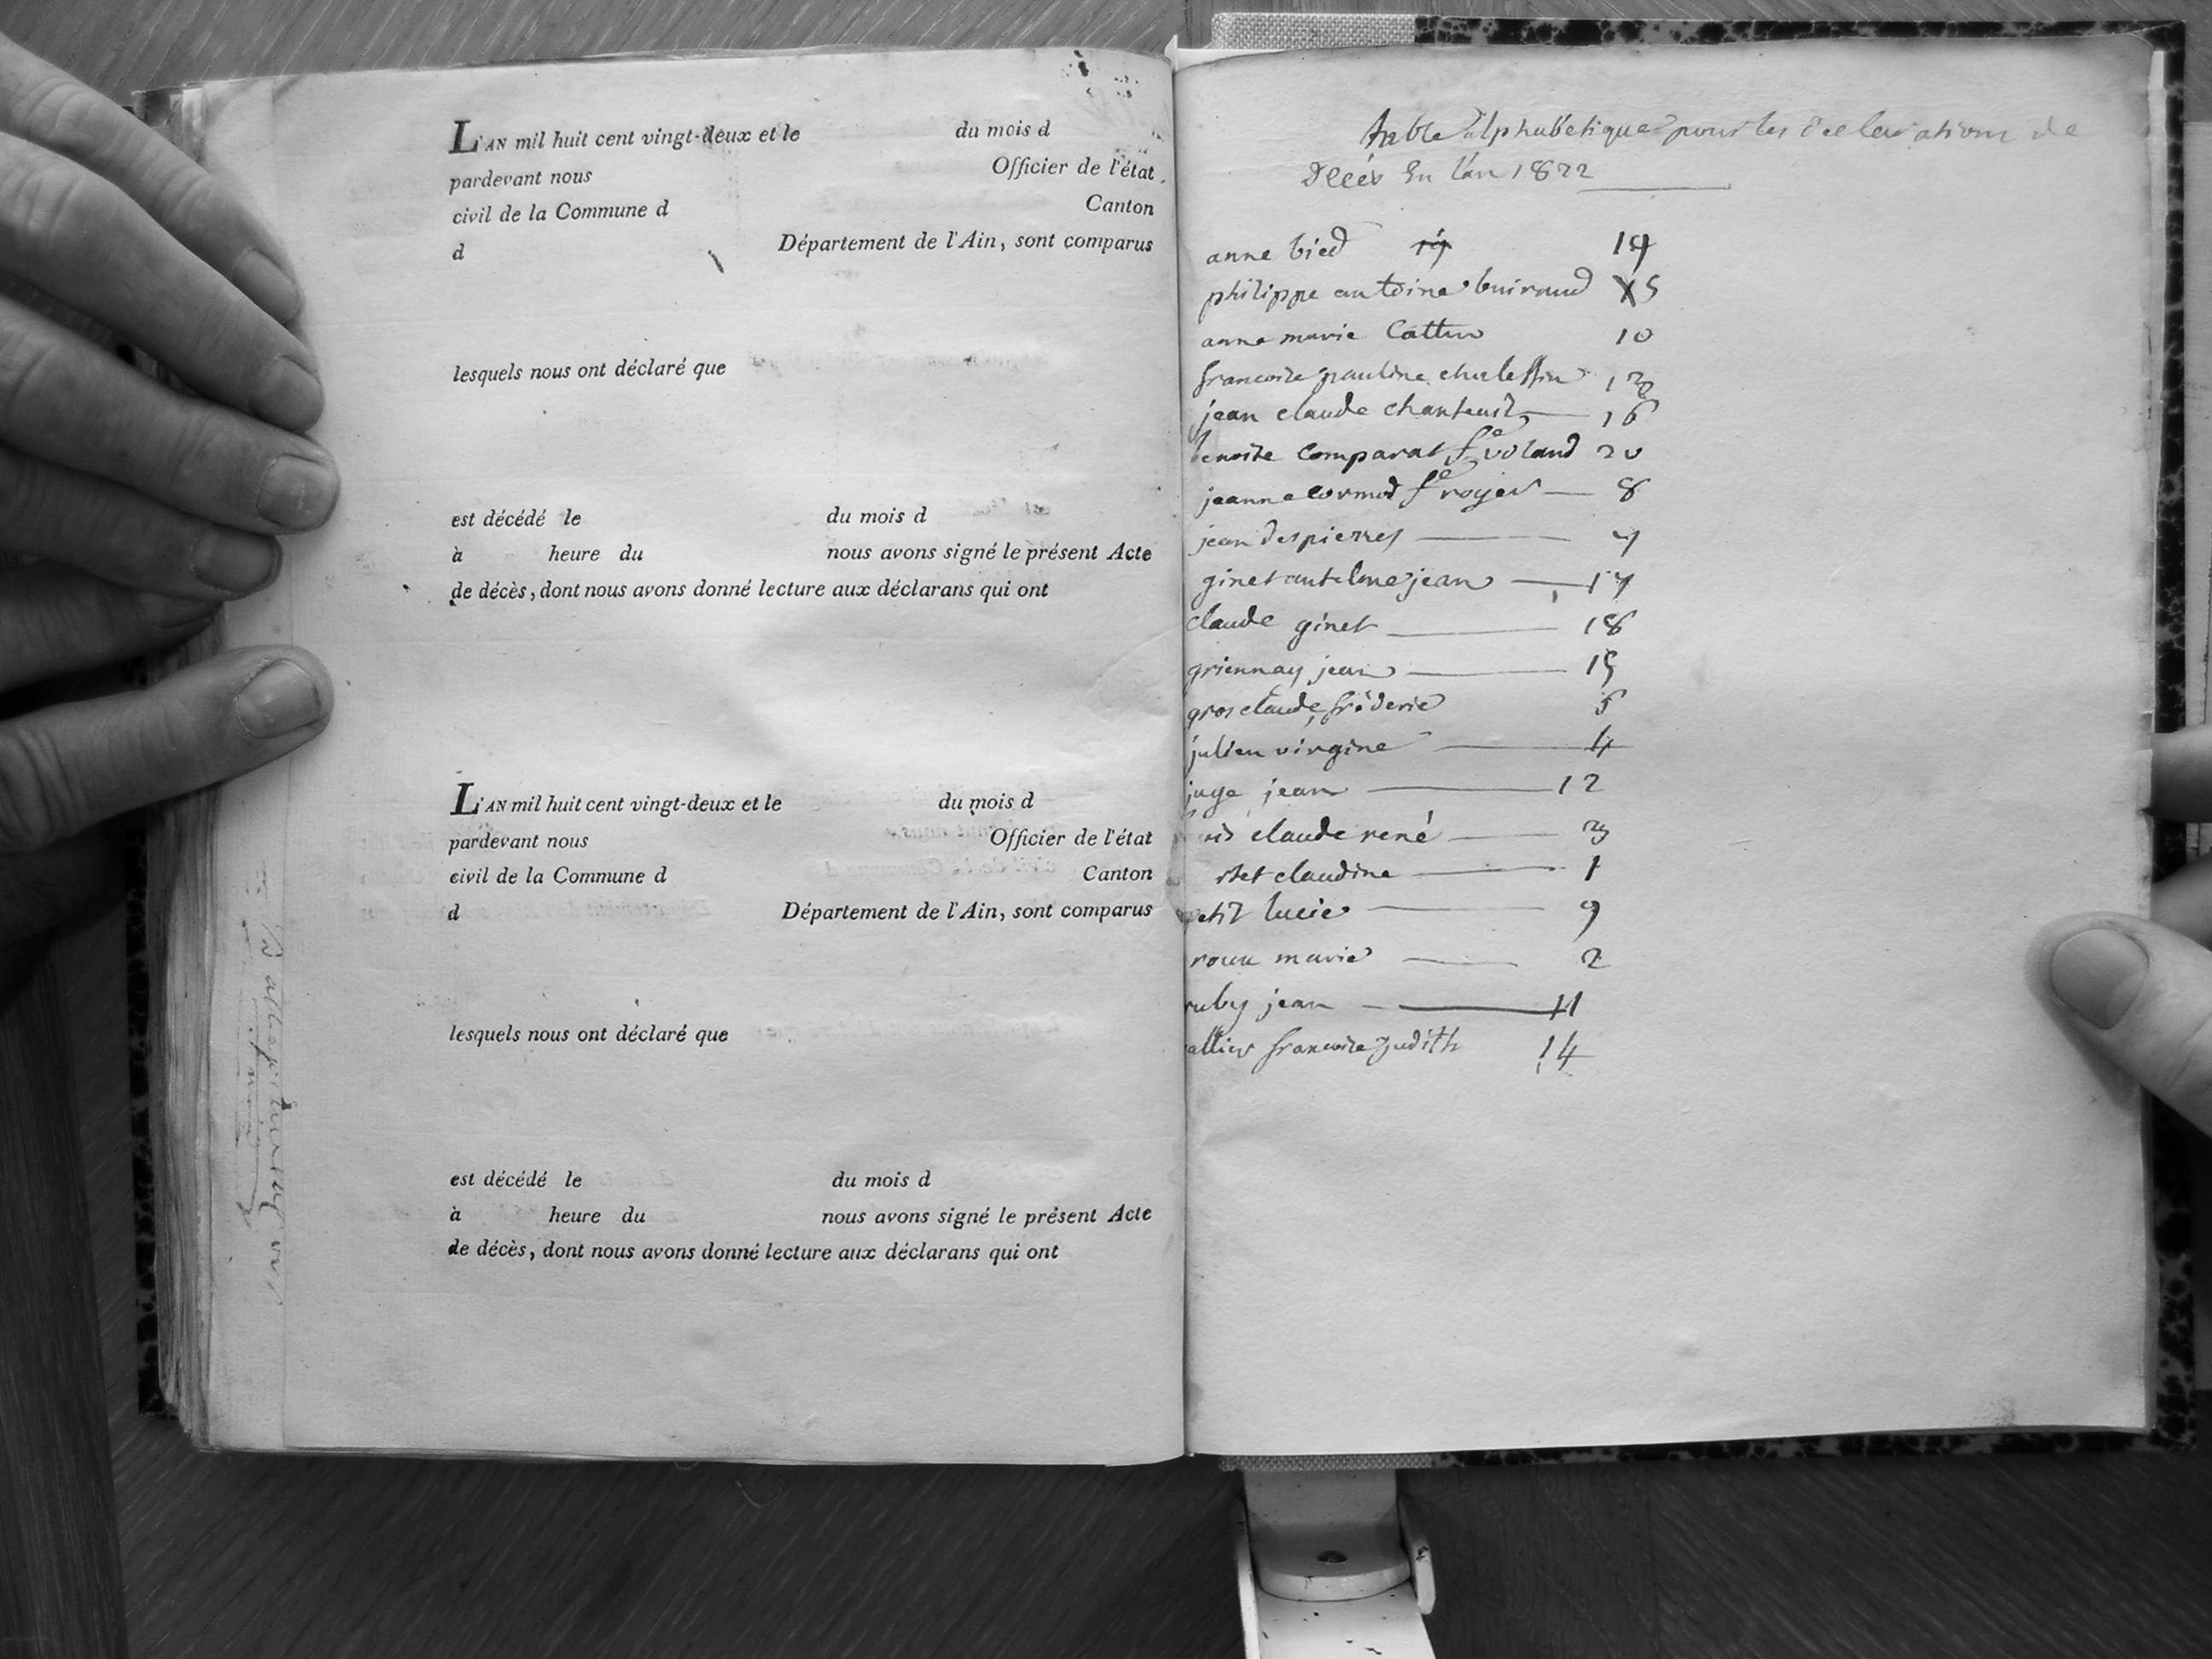 L'AN mil huit cent vingt-deux et le du mois d
pardevant nous Officier de l'état
civil de la Commune d Canton
d Département de l'Ain, sont comparus
lesquels nous ont déclaré que
est décédé le du mois d
à heure du nous avons signé le présent Acte
de décès, dont nous avons donné lecture aux déclarans qui ont
L'AN mil huit cent vingt-deux et le du mois d
pardevant nous Officier de l'état
civil de la Commune d Canton
d Département de l'Ain, sont comparus
lesquels nous ont déclaré que
est décédé le du mois d
à heure du nous avons signé le présent Acte
de décès, dont nous avons donné lecture aux déclarans qui ont
table alphabetique pour les declarations de
Décés En l'an 1822
anne bied 19
philippe antoine buiraud 5
anne marie Cattin 10
francoise pauline 13
jean claude chanteur 16
benoite Comparat fe voland 20
jeanne cormod fe royer 8
jean despierres 7
ginet antelme jean 17
claude ginet 18
griennay jean 15
gros claude fréderic 6
julien virgine 4
juge jean 12
claude rené 3
claudine 1
petit lucie 9
roux marie 2
ruby jean 11
francoise judith 14